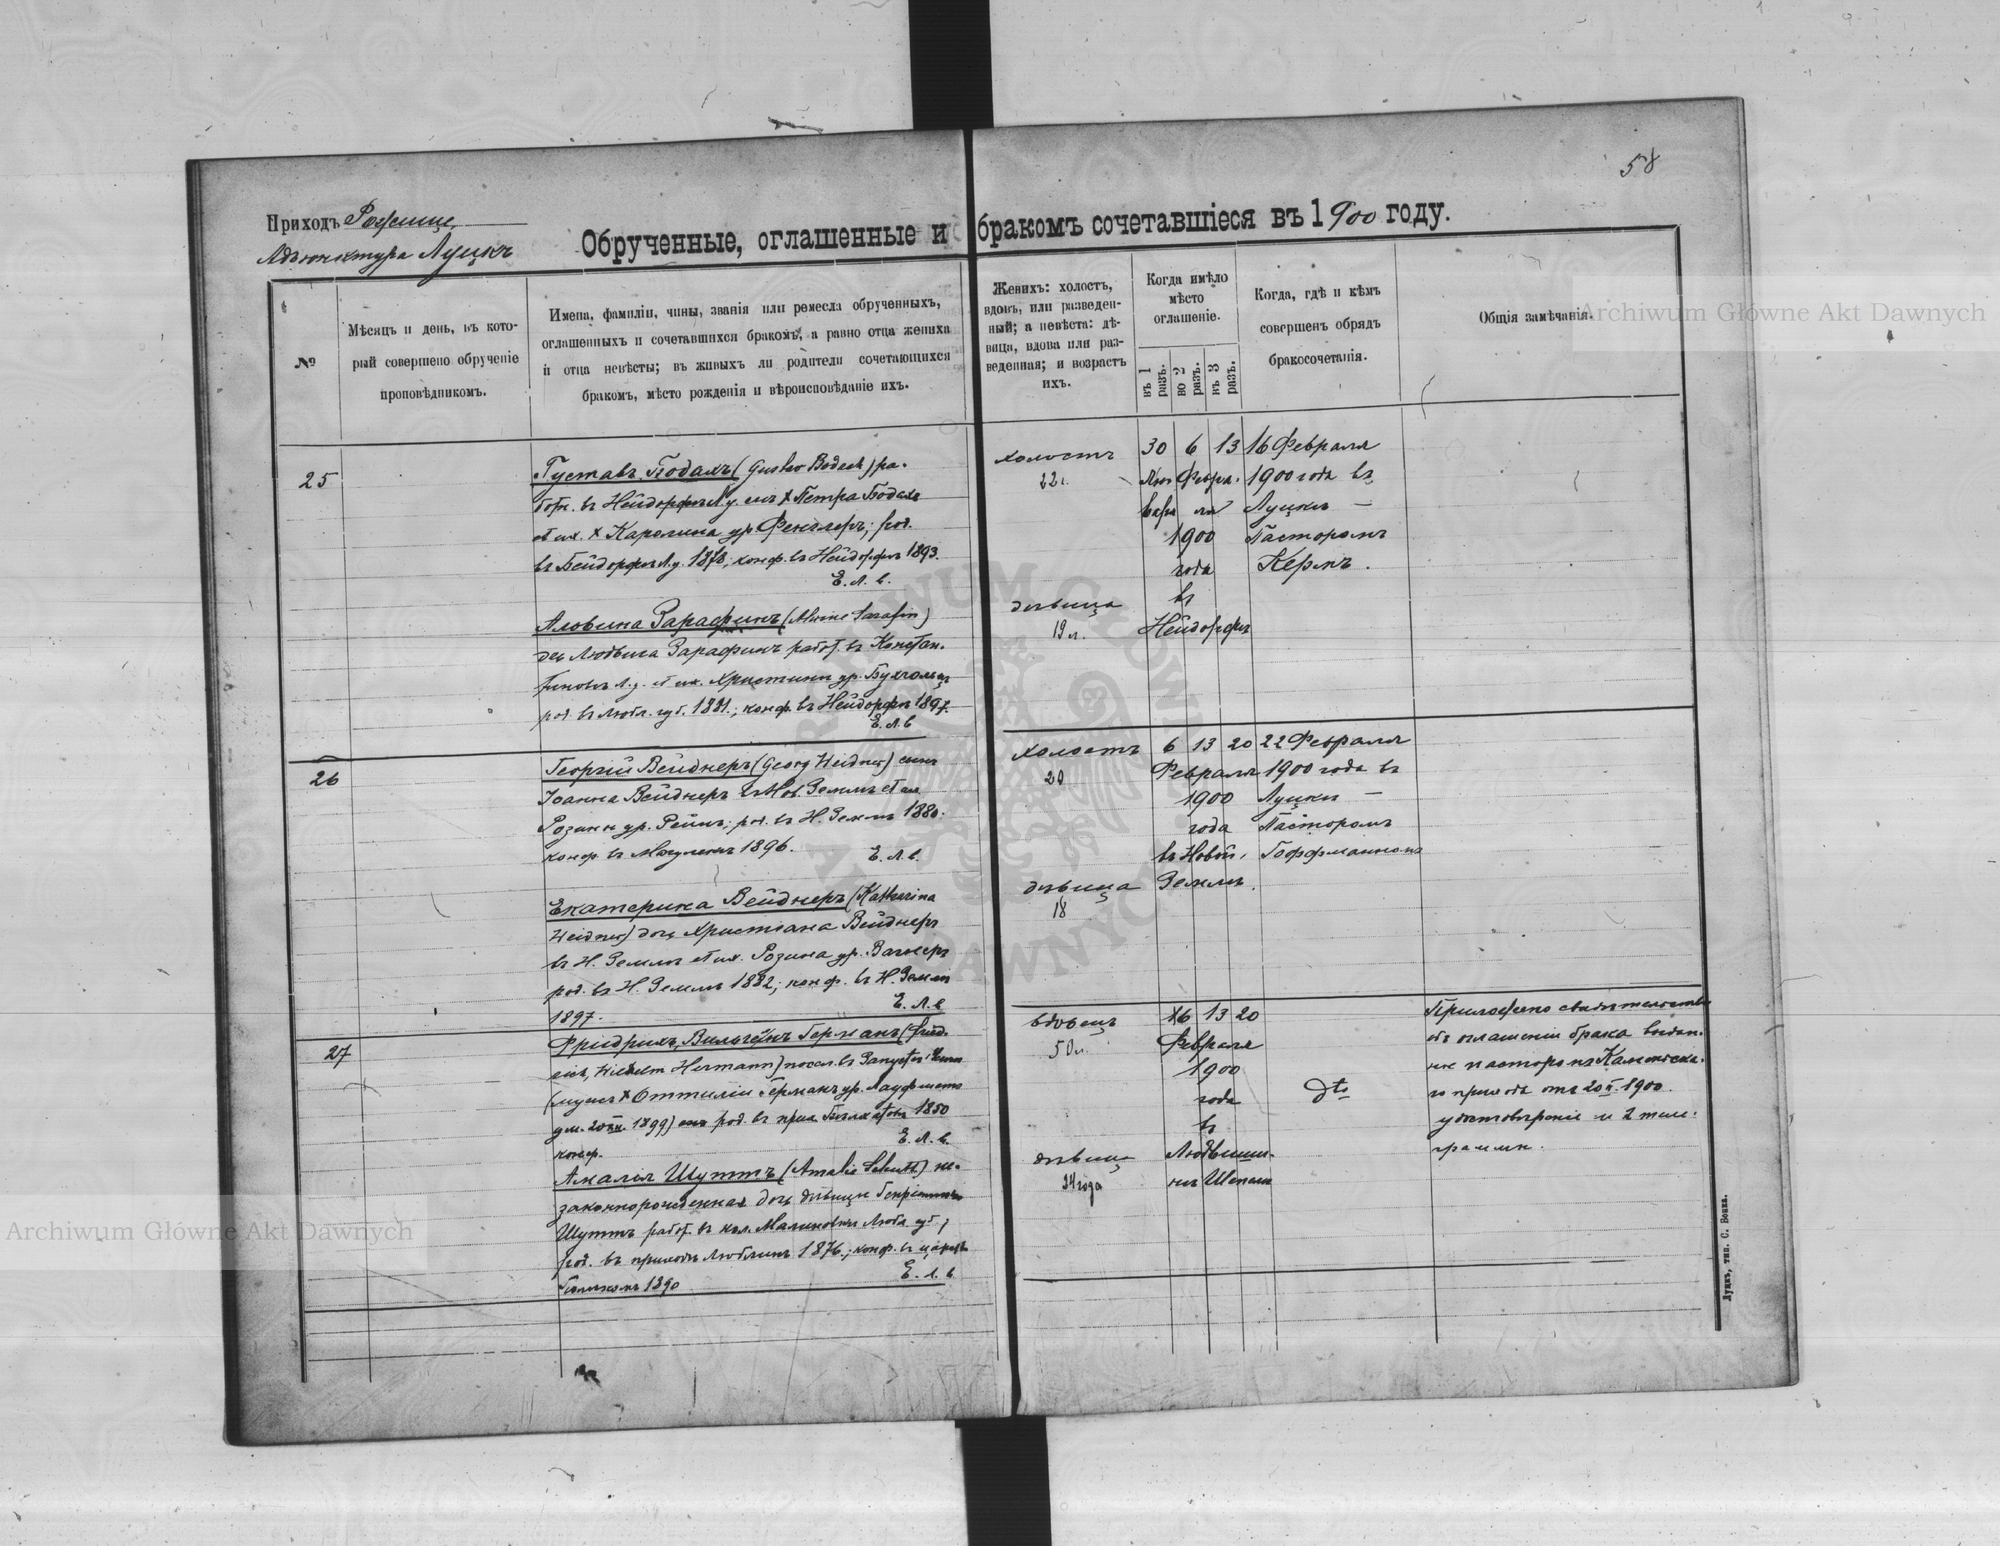 58
Приходъ Рожище,
Адъюнктура Луцкъ
Обрученные, оглашенные и бракомъ сочетавшіеся въ 1900 году.
№
Мѣсяцъ и день, въ кото-
рый совершено обрученіе
проповѣдникомъ.
Имена, фамиліи, чины, званія или ремесла обрученныхъ,
оглашенныхъ и сочетавшихся бракомъ, а равно отца жениха
и отца невѣсты; въ живыхъ ли родители сочетающихся
бракомъ, мѣсто рожденія и вѣроисповѣданіе ихъ.
Женихъ: холостъ,
вдовъ, или разведен-
ный; а невѣста: дѣ-
вица, вдова или раз-
веденная; и возрастъ
ихъ.
Когда имѣло
мѣсто
оглашеніе.
въ 1 разъ.
во 2 разъ.
въ 3 разъ.
Когда, гдѣ и кѣмъ
совершенъ обрядъ
бракосочетанія.
Общія замѣчанія.
25
Густавъ Бодахъ (Gustav Bodach) ра-
ботн. въ Нейдорфѣ Л.у. сынъ † Петра Бодахъ
† Каролина ур. Фенглеръ; род.
1878; конф. въ Нейдорфѣ 1893.
Е. Л. в.
Алвина Зарафинъ (Alwine Sarafin)
дочь Людвига Зарафинъ работ. въ Констан-
тиновѣ Л.у. Христины ур. Бухгольцъ
род. въ Любл. губ. 1881.; конф. въ Нейдорфѣ 1897.
Е. Л. в
холостъ
22 л.
дѣвица
19 л.
30 6 13
Янв Февра-
варя ля
1900
года
въ
Нейдорфѣ
16 Февраля
1900 года въ
Луцкѣ —
Пасторомъ
Кермъ.
26
Георгій Вейднеръ (Georg Weidner) сынъ
Іоанна Вейднеръ въ Нов. Землѣ
Розины ур. Рейнъ; род. въ Н. Землѣ 1880.
конф. въ 1896.
Е. Л. в.
Екатерина Вейднеръ (Katharina
Weidner) дочь Христіана Вейднеръ
въ Н. Землѣ Розина ур. Вагнеръ
род. въ Н. Землѣ 1882; конф. въ Н. Землѣ
1897.
Е. Л. в
холостъ
20
дѣвица
18
6 13 20
Февраля
1900
года
въ Новой
Землѣ.
22 Февраля
1900 года въ
Луцкѣ —
Пасторомъ
Гоффманномъ
27
Фридрихъ, Вильгельмъ Германъ (Fried-
rich, Wilhelm Hermann)
† Оттиліи Германъ ур.
ум. 1899) род. въ 1850
конф.
Е. Л. в.
Амалія Шуттъ (Amalie Schutt) не-
законнорожденная дочь дѣвицы Генріетты
Шуттъ работ. въ кол. Малиновка Любл. губ.,
род. въ приходѣ Люблинъ 1876; конф. въ
1890
Е. Л. в
вдовецъ
50 л.
дѣвица
24 года
6 13 20
Февраля
1900
года
въ
dto
Приложено свидѣтельство
объ оглашеніи брака выдан-
ное пасторомъ
прихода отъ 20 II 1900
удостовѣреніе и 2 теле-
граммы.
Луцкъ, тип. С. Бонка.
Archiwum Główne Akt Dawnych
Archiwum Główne Akt Dawnych
ARCHIWUM GŁÓWNE AKT DAWNYCH